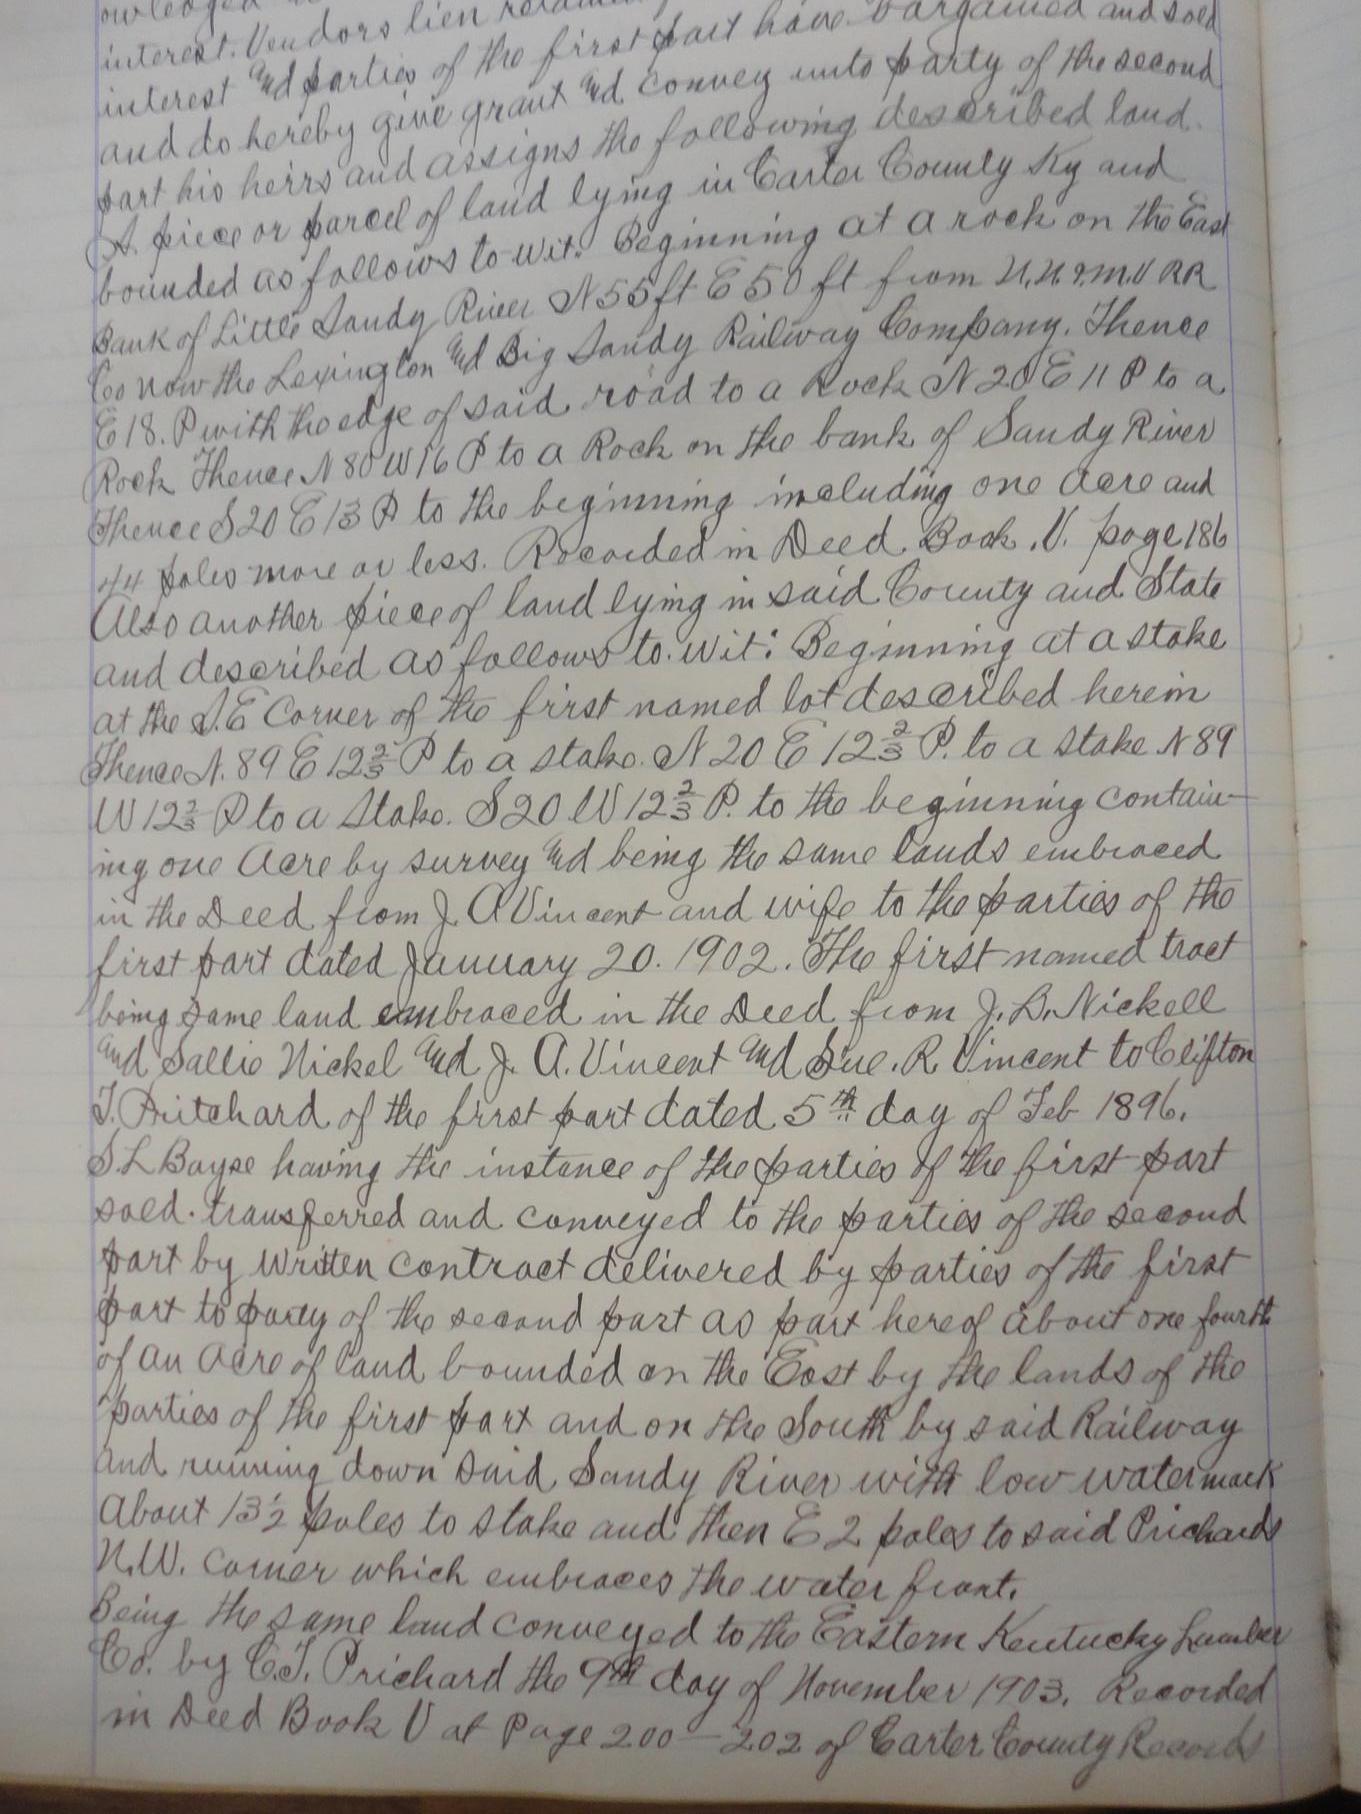 interest. Vendors lien
interest and parties of the first part have bargained and sold
and do hereby give grant and convey unto party of the second
part his heirs and assigns the following described land.
A. piece or parcel of land lying in Carter County Ky and
bounded as follows to-wit: Beginning at a rock on the East
Bank of Little Sandy River N 55 ft E 50 ft from RR
Co now the Lexington and Big Sandy Railway Company. Thence
E 18. P with the edge of said road to a Rock N 20 E 11 P to a
Rock Thence N 80 W 16 P to a Rock on the bank of Sandy River
Thence S 20 E 13 P to the beginning including one Acre and
44 poles more or less. Recorded in Deed Book. V. page 186
Also another piece of land lying in said County and State
and described as follows to-wit: Beginning at a stake
at the S.E Corner of the first named lot described herein
Thence N. 89 E 12 2/3 P to a stake. N 20 E 12 2/3 P. to a stake N 89
W 12 2/3 P to a Stake. S 20 W 12 2/3 P. to the beginning contain-
ing one Acre by survey and being the same lands embraced
in the Deed from J. A Vincent and wife to the parties of the
first part dated January 20. 1902. The first named tract
being same land embraced in the Deed from J. B. Nickell
and Sallie Nickel and J. A. Vincent and Sue. R. Vincent to Clifton
T. Pritchard of the first part dated 5th day of Feb 1896.
S. L Bayse having the instance of the parties of the first part
sold. transferred and conveyed to the parties of the second
part by written contract delivered by parties of the first
part to party of the second part as part hereof about one fourth
of an Acre of land bounded on the East by the lands of the
parties of the first part and on the South by said Railway
and running down said Sandy River with low water mark
About 13 1/2 poles to stake and then E 2 poles to said Prichards
N.W. corner which embraces the water front.
Being the same land conveyed to the Eastern Kentucky Lumber
Co. by C.T. Prichard the 9th day of November 1903. Recorded
in Deed Book V at Page 200-202 of Carter County Records